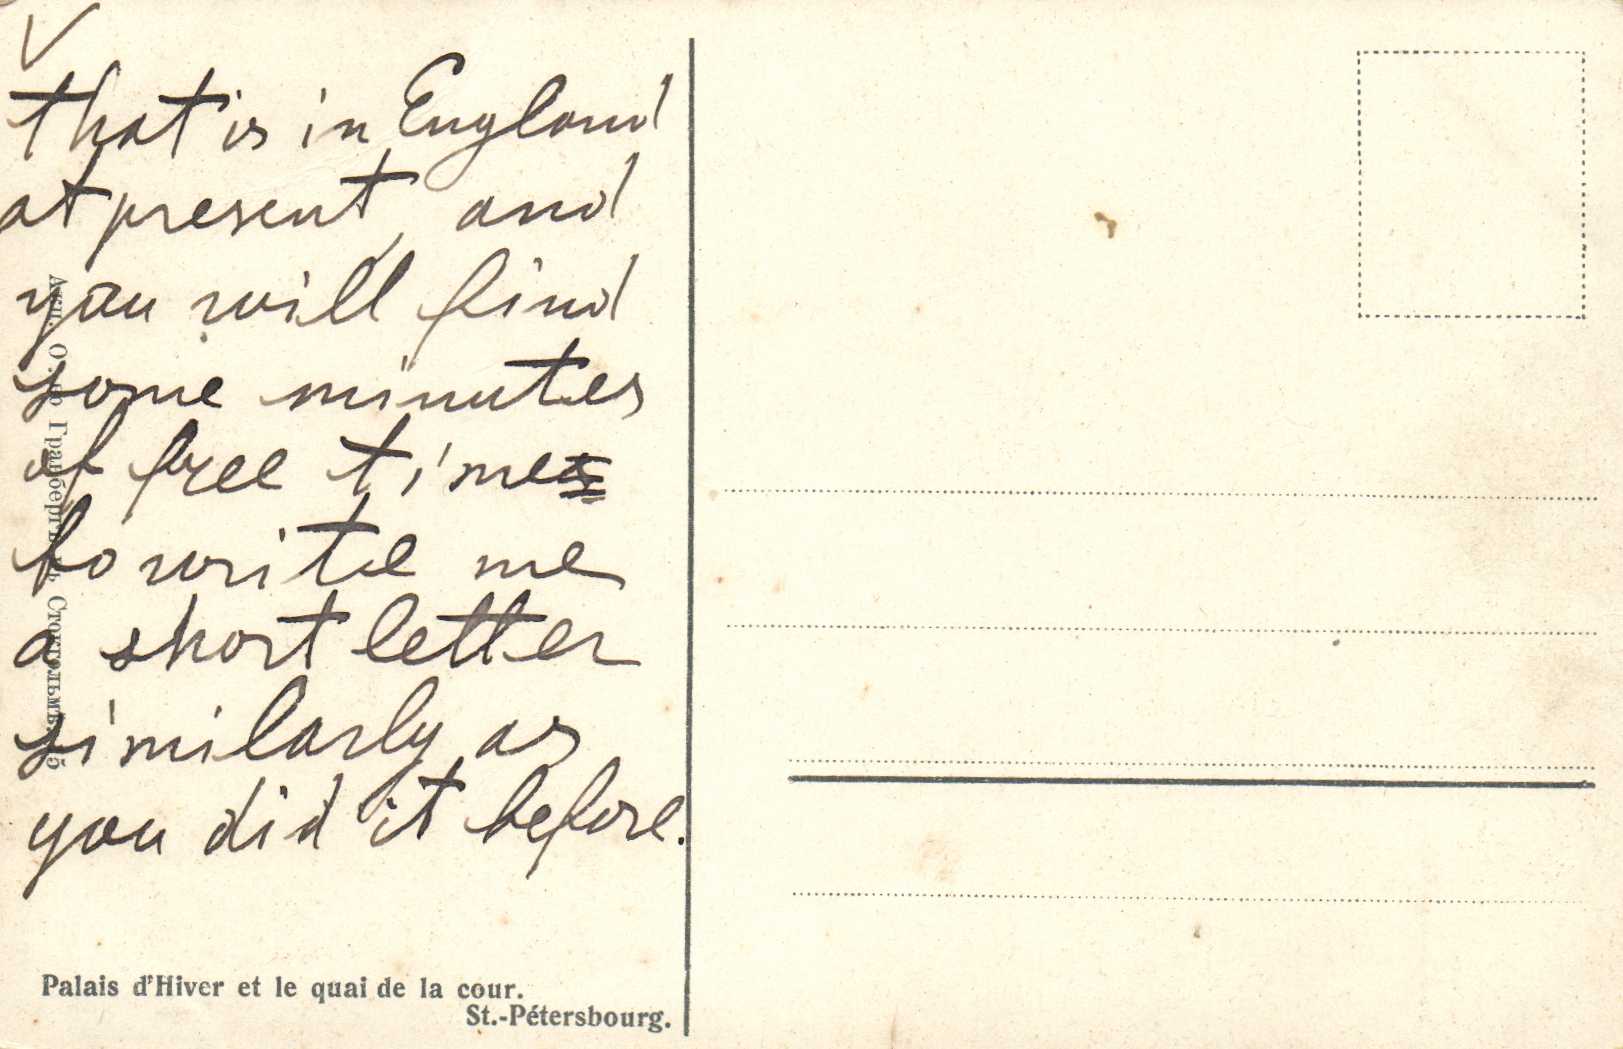 V
that is in England
at present, and
you will find
some minutes
of free time
to write me
a short letter
similarly as
you did it before.
Акц. О. Гранбергъ въ Стокгольмъ. 
Palais d'Hiver et le quai de la cour.
St.-Pétersbourg.